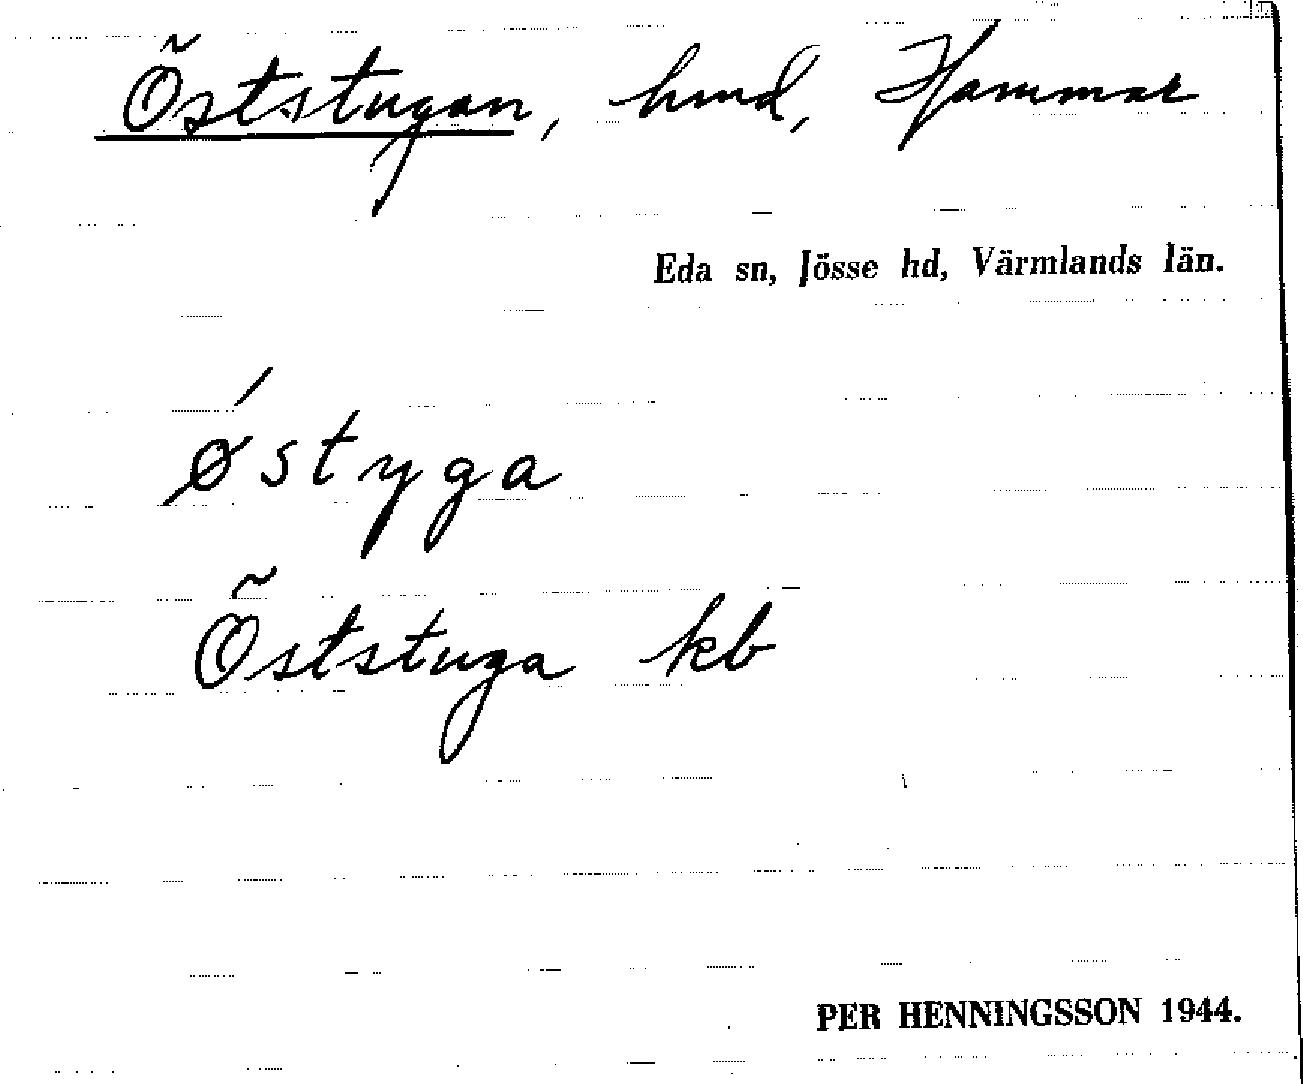 Öststugan, hmd, Hammar
Eda sn, Jösse hd, Värmlands län.
østyga
Öststuga kb
PER HENNINGSSON 1944.